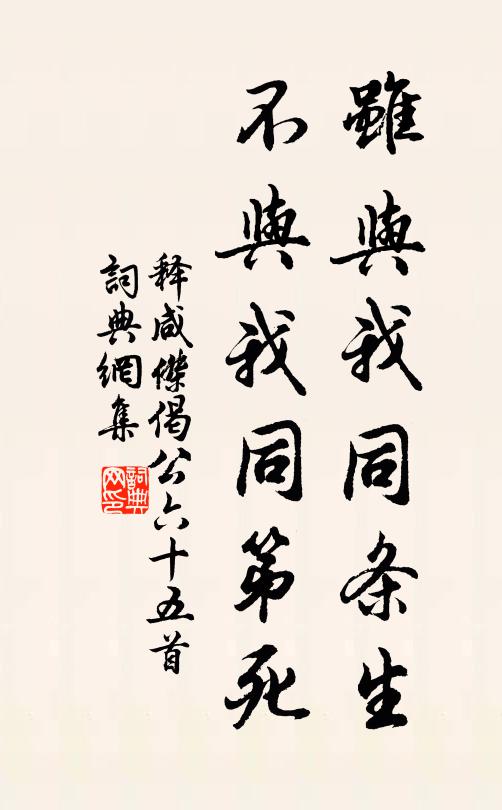 雖與我同条生
不與我同第死
释咸傑偈公六十五首
詞典網集
詞典網印